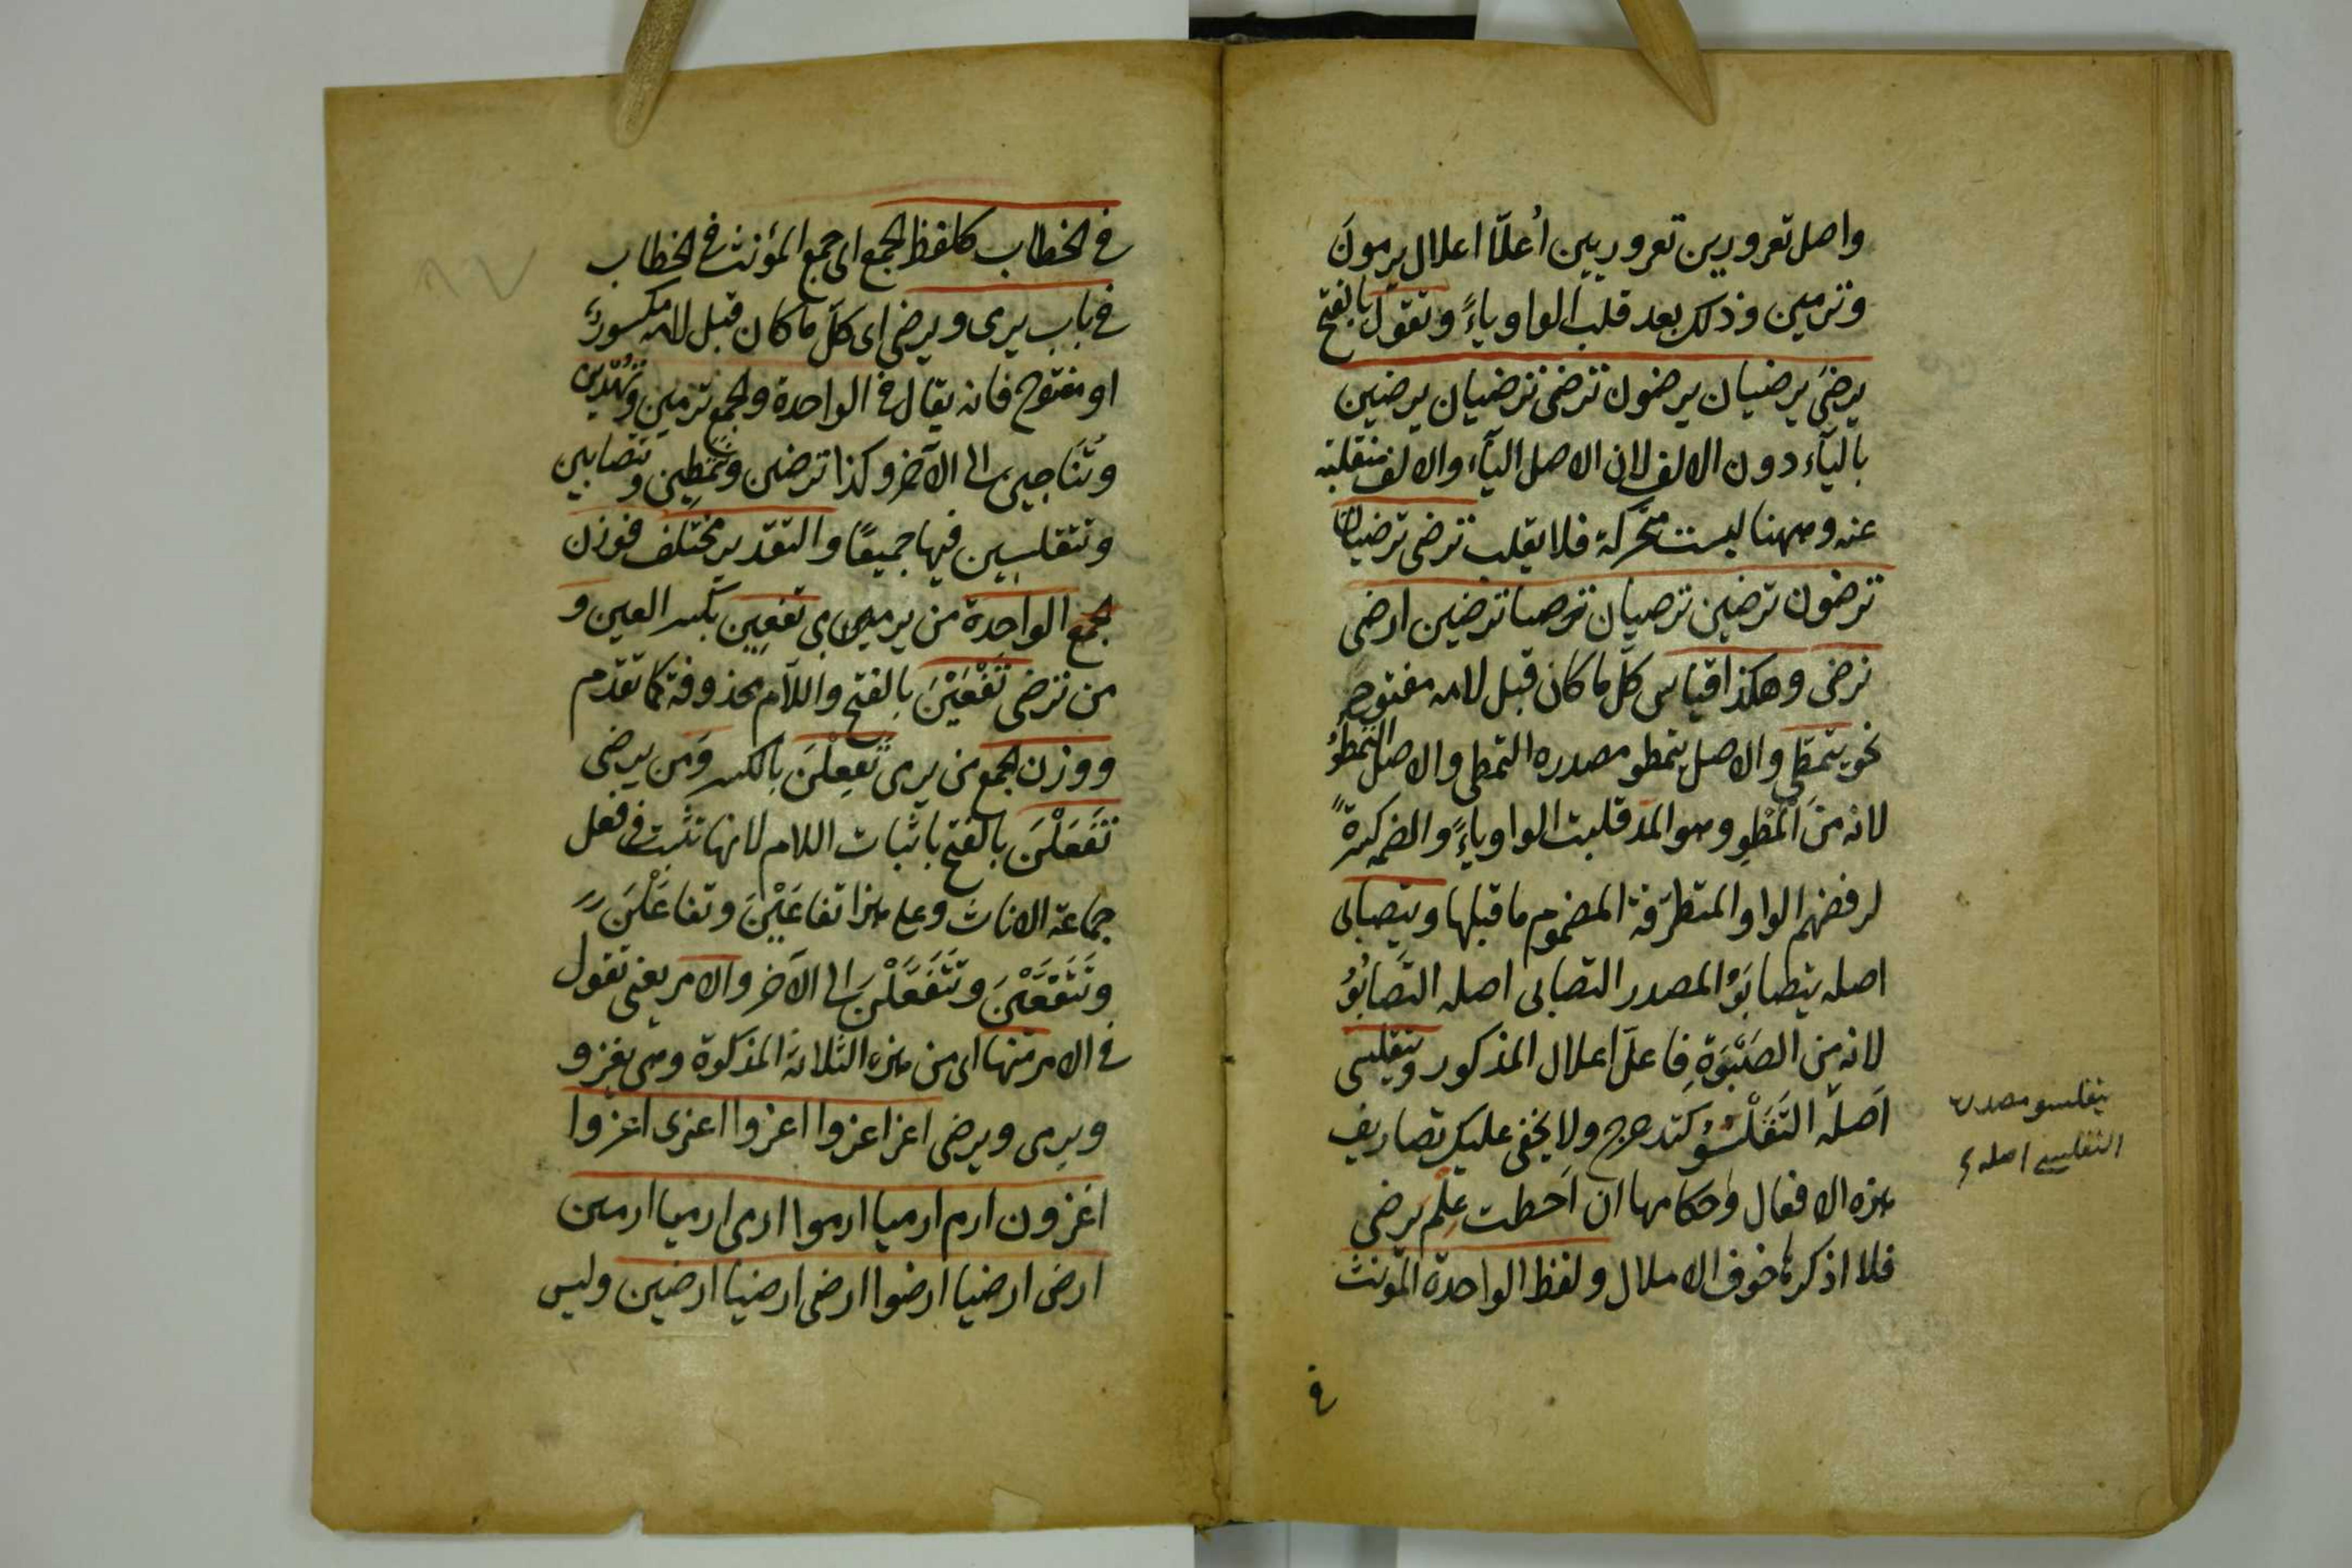 واصل تعرورين تعروريين اُعلّا اعلال يرمونَ
وترمين وذلك بعد قلب الواو ياءً وتقول بالفتح
يرضىَ يرضيان يرضون ترضى ترضيان يرضين
بالياء دون الالف لان الاصل الياء والالف منقلبة
عنه وههنا ليست متحركة فلا يقلب ترضى ترضيان
ترضون ترضين ترضيان ترضيا ترضين ارضى
نرضى وهكذا قياس كلّ ما كان قبل لامه مفتوح
نحو يتمطى والاصل يتمطو مصدره التمطى والاصل التمطُوُ
لانه من المَطْوِ وهو المد قلبت الواو ياءً والضمه كسرةً
لرفضهم الواو المتطرّفة المضموم ما قبلها ويتصابى
اصله يتصابَوُ المصدر التصابى اصله التَّصَابُوُ
لانه من الصَبْوَةِ فاعلّ اعلال المذكور ويتقلسى
اصله التَقَلْسُوُ كتدحرج ولا يخفى عليك تصاريف
هذه الافعال واحكامها ان احطت علم يرضى
فلا اذكرها خوف الاملال ولفظ الواحدة المؤنث
يتقلسو مصدره
التقلسى اصله
فى
فى الخطاب كلفظ الجمع اى جمع المؤنث فى الخطاب
فى باب يرمى ويرضى اى كلّ ما كان قبل لامه مكسورة
او مفتوح فانه يقال فى الواحدة والجمع ترمين وتهدين
وتُناجين الى الآخر وكذا ترضين وتتمطين وتتصابين
وتتقلسين فيها جميعًا والتقدير مختلف فوزن
جمع الواحدة من يرمى تفعين بكسر العين و
من ترضى تَفْعَيْنَ بالفتح واللام محذوفة كما تقدّم
ووزن الجمع من يرمى تَفعِلْنَ بالكسر ومن يرضى
تَفْعَلْنَ بالفتح باثبات اللام لانها تثبت فى فعل
جماعة الاناث وعلى هذا تفاعَيْنَ وتفاعَلْنَ
وتَتَفَعَّيْنَ وتَتَفَعَّلْنَ الى الآخر والامر يعنى تقول
فى الامر منها اى من هذه الثلاثة المذكورة وهى يغزو
ويرمى ويرضى اغز اغزوا اغزوا اغزى اغزوا
اغزون ارم ارميا ارموا ارمى ارميا ارمين
ارض ارضيا ارضوا ارضى ارضيا ارضين وليس